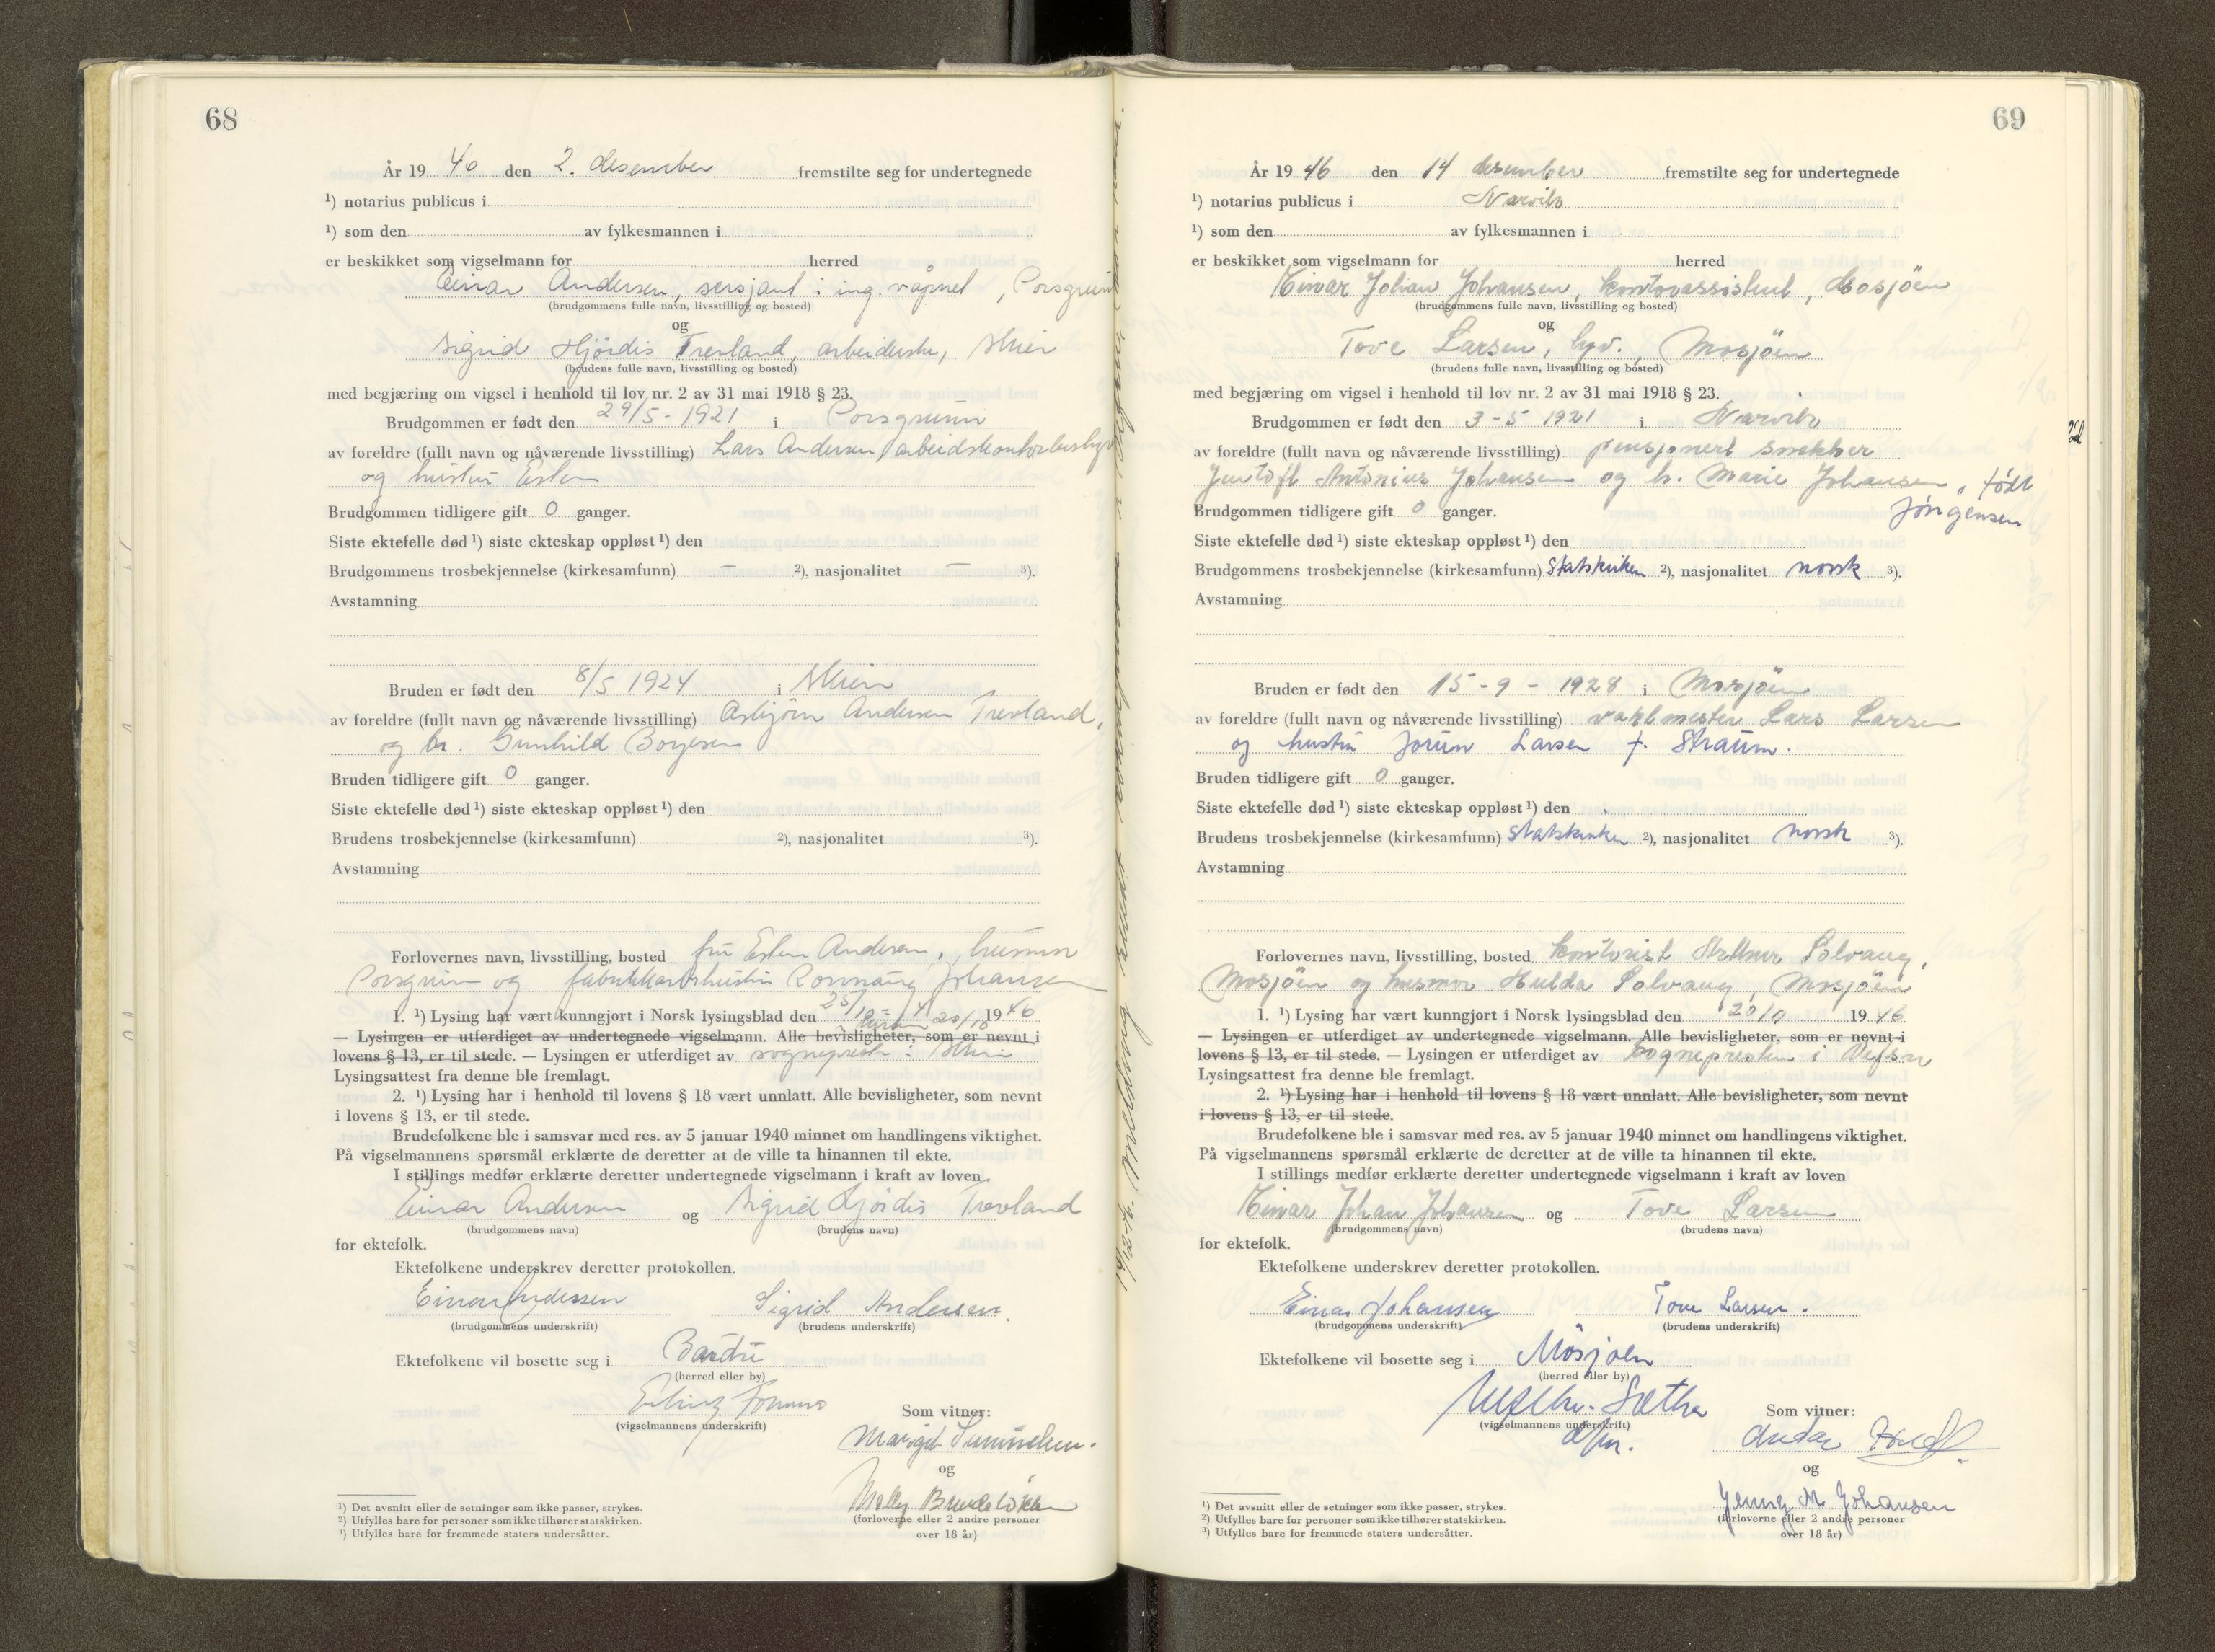 68
År 19 40 den 2. desember fremstilte seg for undertegnede
¹) notarius publicus i
¹) som den av fylkesmannen i
er beskikket som vigselmann for herred
Einar Andersen, sersjant i ing. våpnet, Porsgrunn
(brudgommens fulle navn, livsstilling og bosted)
og
Sigrid Hjördis Trevland, arbeiderske, Skien
(brudens fulle navn, livsstilling og bosted)
med begjæring om vigsel i henhold til lov nr. 2 av 31 mai 1918 § 23.
Brudgommen er født den 29/5 - 1921 i Porsgrunn
av foreldre (fullt navn og nåværende livsstilling) Lars Andersen, arbeidskontorbestyr
og hustru Ester
Brudgommen tidligere gift 0 ganger.
Siste ektefelle død ¹) siste ekteskap oppløst ¹) den
Brudgommens trosbekjennelse (kirkesamfunn) — ²), nasjonalitet — ³).
Avstamning
Bruden er født den 8/5 1924 i Skien
av foreldre (fullt navn og nåværende livsstilling) Asbjörn Andersen Trevland,
og h. Gunhild Borgesen
Bruden tidligere gift 0 ganger.
Siste ektefelle død ¹) siste ekteskap oppløst ¹) den
Brudens trosbekjennelse (kirkesamfunn) ²), nasjonalitet ³).
Avstamning
Forlovernes navn, livsstilling, bosted fru Ester Andersen, husmor
Porsgrunn og Johansen
1. ¹) Lysing har vært kunngjort i Norsk lysingsblad den 25/10 - 19 46
— Lysingen er utferdiget av undertegnede vigselmann. Alle bevisligheter, som er nevnt i
lovens § 13, er til stede. — Lysingen er utferdiget av sogneprest i Skien
Lysingsattest fra denne ble fremlagt.
2. ¹) Lysing har i henhold til lovens § 18 vært unnlatt. Alle bevisligheter, som nevnt
i lovens § 13, er til stede.
Brudefolkene ble i samsvar med res. av 5 januar 1940 minnet om handlingens viktighet.
På vigselmannens spørsmål erklærte de deretter at de ville ta hinannen til ekte.
I stillings medfør erklærte deretter undertegnede vigselmann i kraft av loven
Einar Andersen og Sigrid Hjördis Trevland
(brudgommens navn) (brudens navn)
for ektefolk.
Ektefolkene underskrev deretter protokollen.
Einar Andersen Sigrid Andersen.
(brudgommens underskrift) (brudens underskrift)
Ektefolkene vil bosette seg i Bardu
(herred eller by)
Erling
(vigselmannens underskrift)
Som vitner:
Margit
og
Molly
(forloverne eller 2 andre personer
over 18 år)
¹) Det avsnitt eller de setninger som ikke passer, strykes.
²) Utfylles bare for personer som ikke tilhører statskirken.
³) Utfylles bare for fremmede staters undersåtter.
Melding sendt
69
År 19 46 den 14 desember fremstilte seg for undertegnede
¹) notarius publicus i Narvik
¹) som den av fylkesmannen i
er beskikket som vigselmann for herred
Einar Johan Johansen, kontorassistent, Mosjöen
(brudgommens fulle navn, livsstilling og bosted)
og
Tove Larsen, hjv., Mosjöen
(brudens fulle navn, livsstilling og bosted)
med begjæring om vigsel i henhold til lov nr. 2 av 31 mai 1918 § 23.
Brudgommen er født den 3 - 5 1921 i Narvik
av foreldre (fullt navn og nåværende livsstilling) pensjonert snekker
Jentoft Antonius Johansen og h. Marie Johansen, født
Jörgensen
Brudgommen tidligere gift 0 ganger.
Siste ektefelle død ¹) siste ekteskap oppløst ¹) den
Brudgommens trosbekjennelse (kirkesamfunn) Statskirken ²), nasjonalitet norsk ³).
Avstamning
Bruden er født den 15 - 9 - 1928 i Mosjöen
av foreldre (fullt navn og nåværende livsstilling) vaktmester Lars Larsen
og hustru Jorun Larsen f. Straum.
Bruden tidligere gift 0 ganger.
Siste ektefelle død ¹) siste ekteskap oppløst ¹) den
Brudens trosbekjennelse (kirkesamfunn) Statskirken ²), nasjonalitet norsk ³).
Avstamning
Forlovernes navn, livsstilling, bosted kontorist Solvang,
Mosjöen og husmor Hulda Solvang, Mosjöen
1. ¹) Lysing har vært kunngjort i Norsk lysingsblad den 19 46
— Lysingen er utferdiget av undertegnede vigselmann. Alle bevisligheter, som er nevnt i
lovens § 13, er til stede. — Lysingen er utferdiget av Sognepresten i Vefsn
Lysingsattest fra denne ble fremlagt.
2. ¹) Lysing har i henhold til lovens § 18 vært unnlatt. Alle bevisligheter, som nevnt
i lovens § 13, er til stede.
Brudefolkene ble i samsvar med res. av 5 januar 1940 minnet om handlingens viktighet.
På vigselmannens spørsmål erklærte de deretter at de ville ta hinannen til ekte.
I stillings medfør erklærte deretter undertegnede vigselmann i kraft av loven
Einar Johan Johansen og Tove Larsen
(brudgommens navn) (brudens navn)
for ektefolk.
Ektefolkene underskrev deretter protokollen.
Einar Johansen Tove Larsen.
(brudgommens underskrift) (brudens underskrift)
Ektefolkene vil bosette seg i Mosjöen
(herred eller by)
Sætha
(vigselmannens underskrift)
Som vitner:
og
Jenny M Johansen
(forloverne eller 2 andre personer
over 18 år)
¹) Det avsnitt eller de setninger som ikke passer, strykes.
²) Utfylles bare for personer som ikke tilhører statskirken.
³) Utfylles bare for fremmede staters undersåtter.